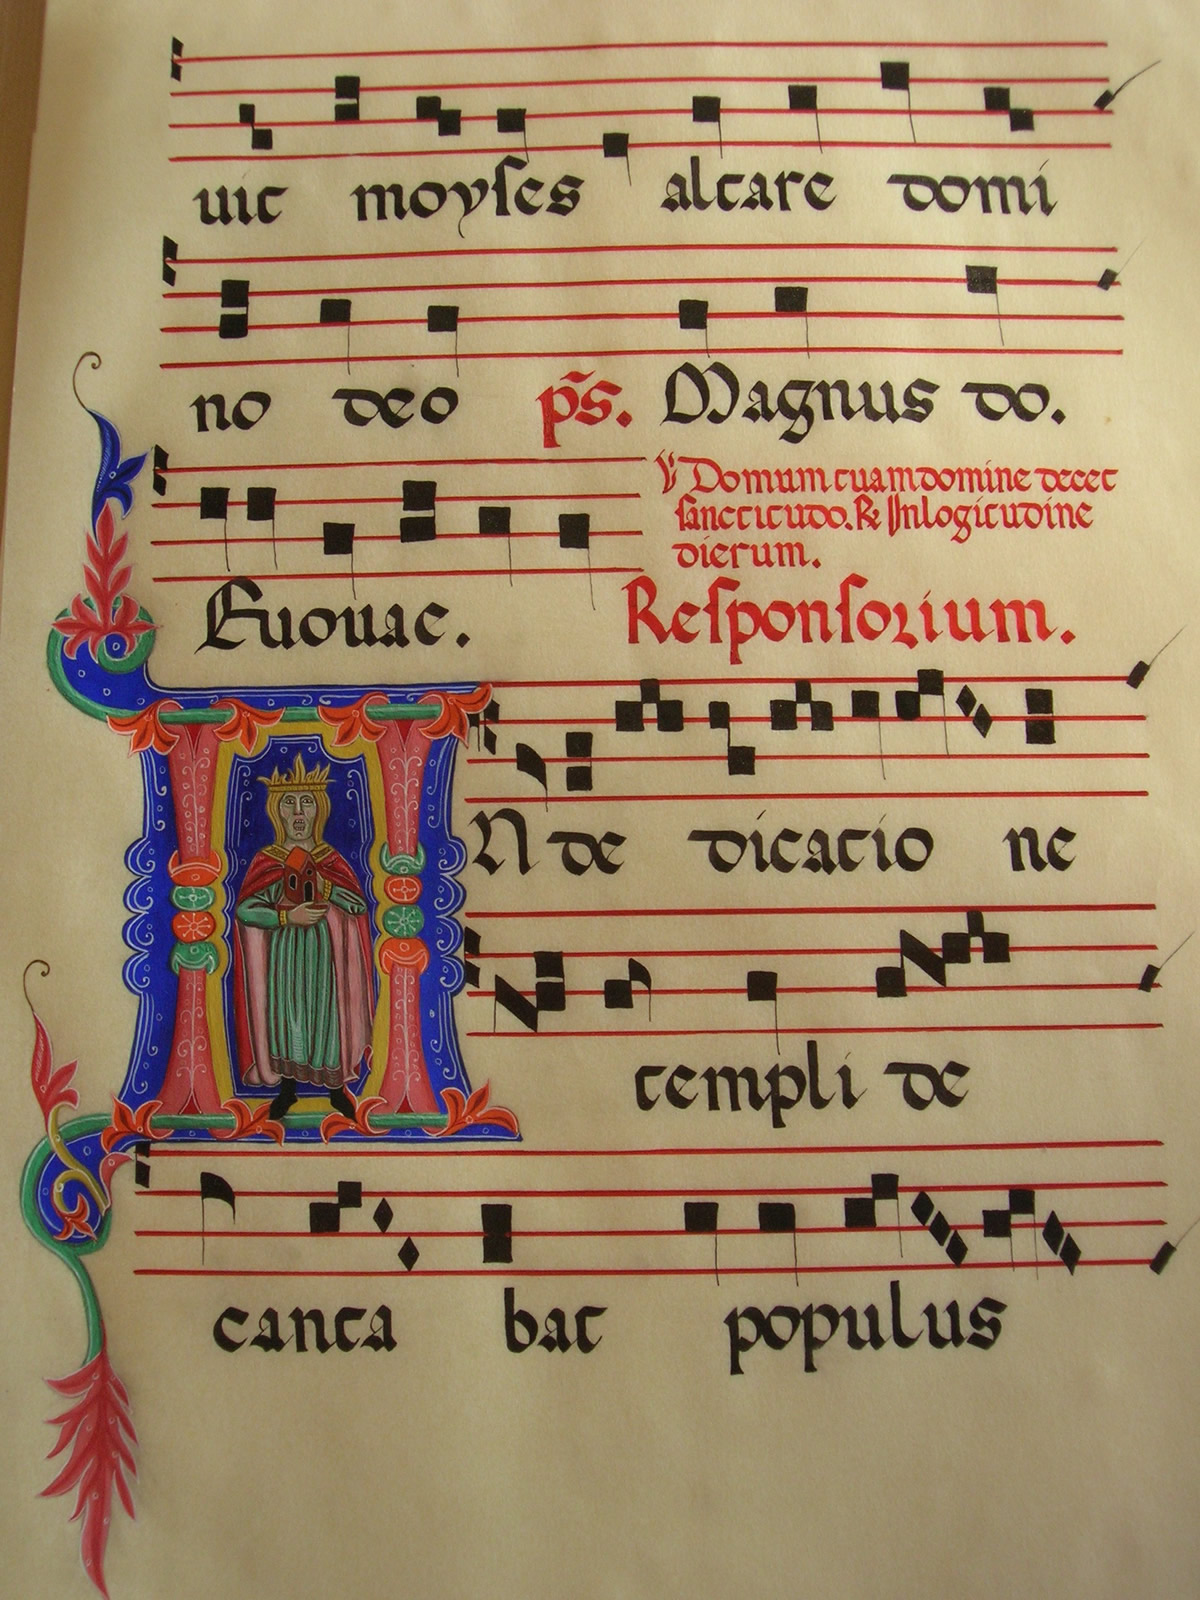 uit moyses altare domi
no deo p̃s. Magnus do.
℣ Domum tuam domine decet
sanctitudo. ℟ In logitudine
dierum.
Euouae. Responsorium.
IN de dicatio ne
templi de
canta bat populus